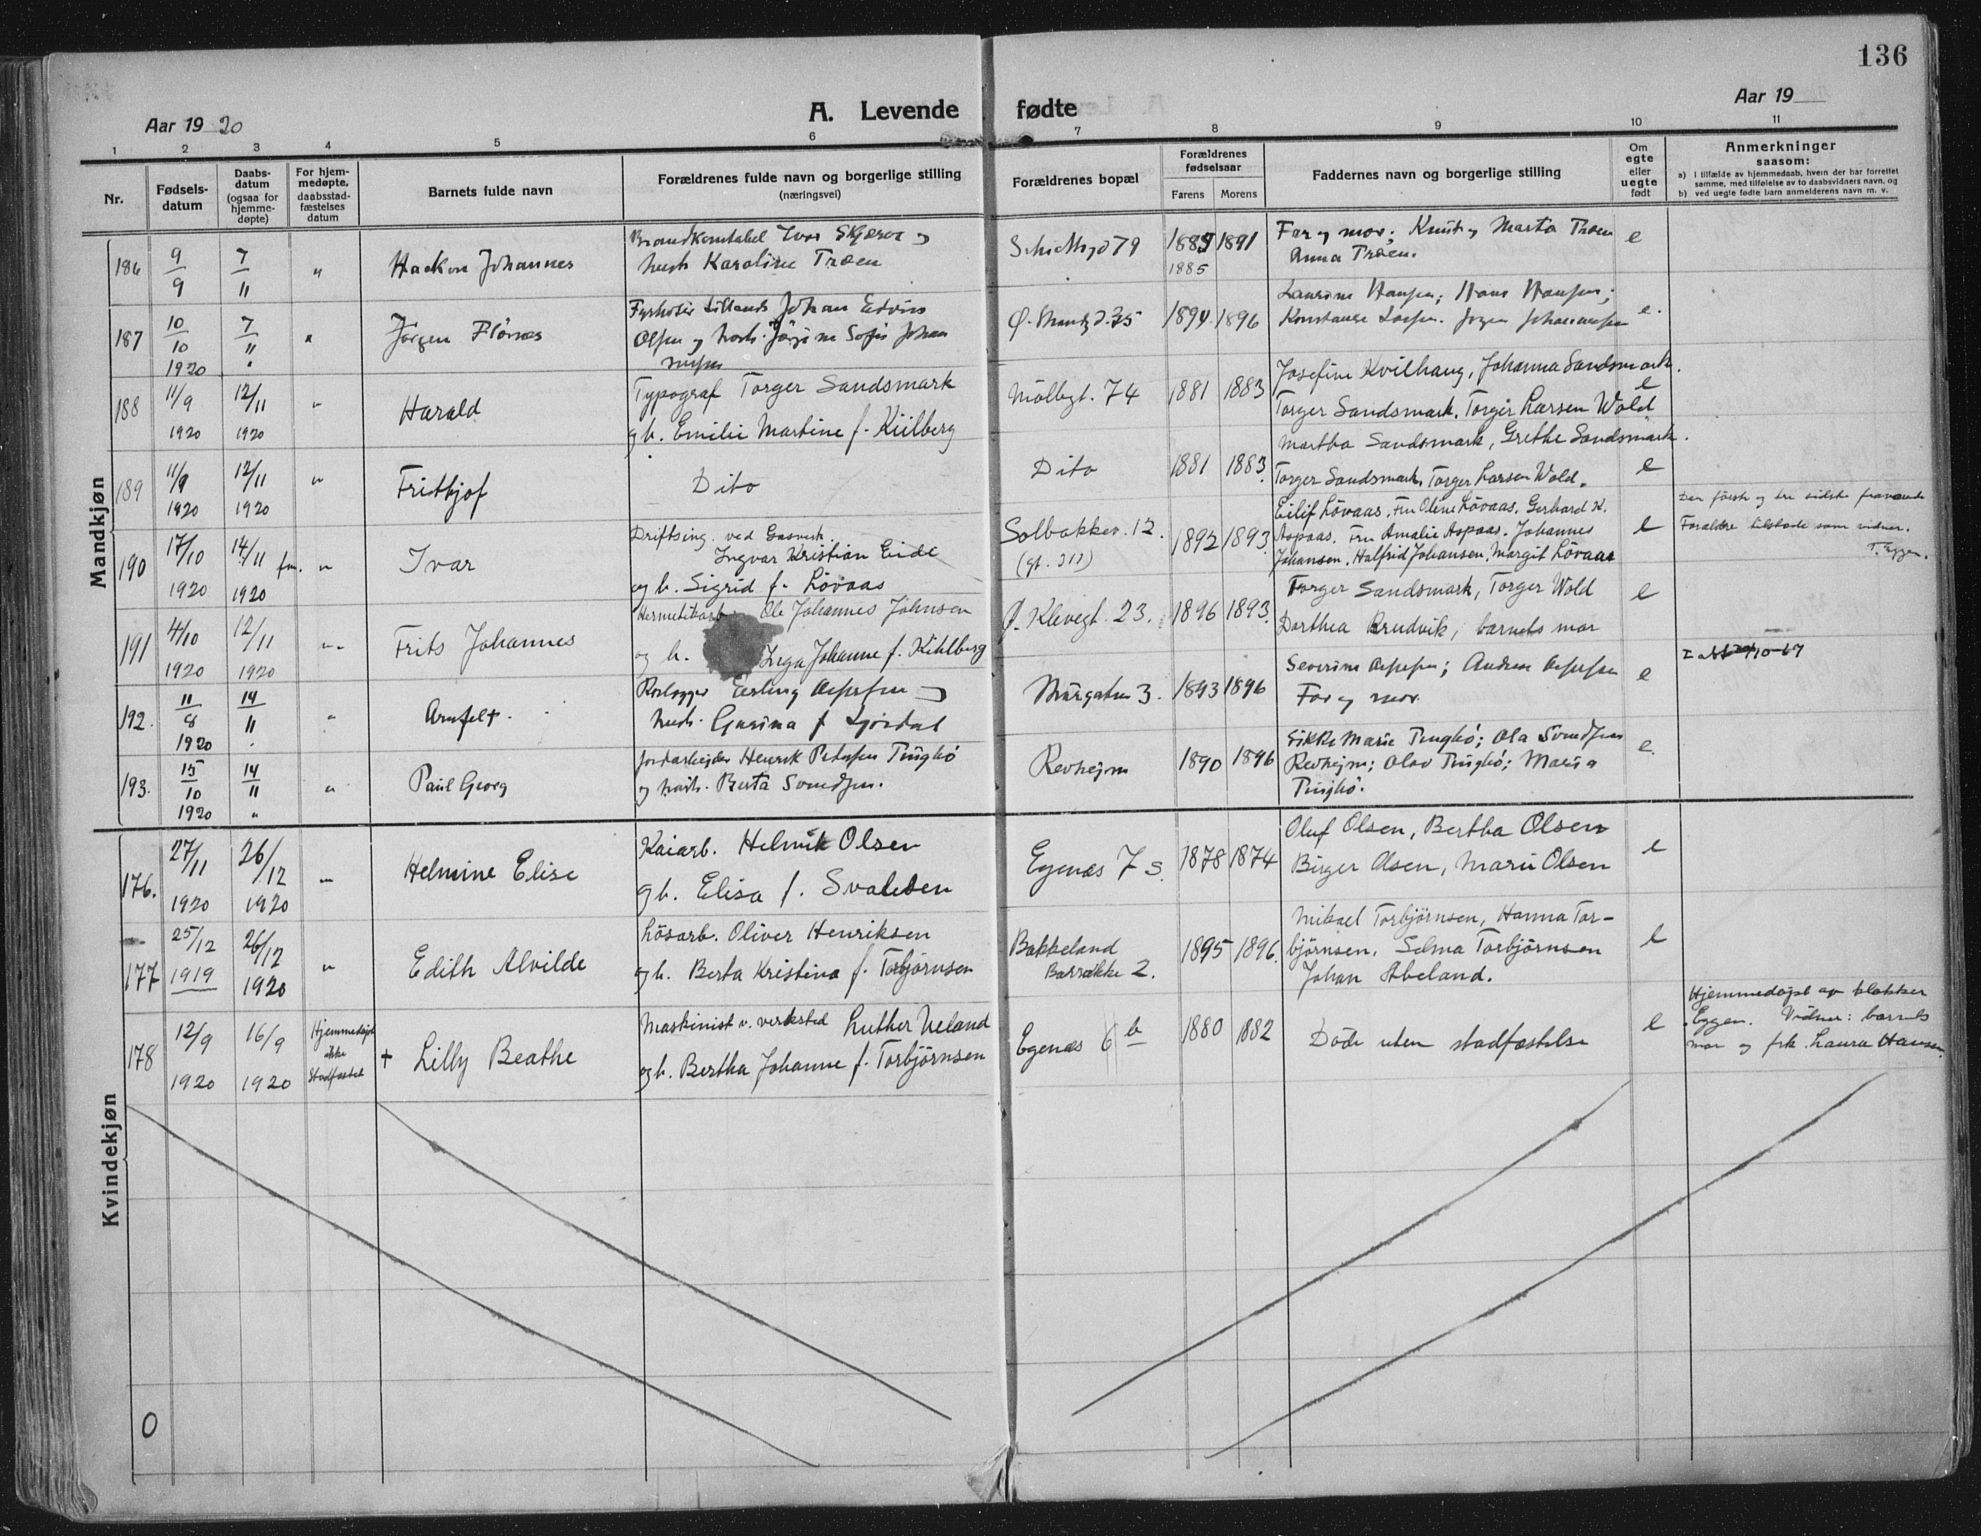 136
Aar 1920
A. Levende fødte
Aar 19
1 2 3 4 5 6 7 8 9 10 11
Nr.
Fødsels-
datum
Daabs-
datum
(ogsaa for
hjemme-
døpte)
For hjem-
medøpte,
daabsstad-
fæstelses
datum
Barnets fulde navn
Forældrenes fulde navn og borgerlige stilling
(næringsvei)
Forældrenes bopæl
Forældrenes
fødselsaar
Farens Morens
Faddernes navn og borgerlige stilling
Om
egte
eller
uegte
født
Anmerkninger
saasom:
a) I tilfælde av hjemmedaab, hvem der har forrettet
samme, med tilføielse av to daabsvidners navn, og
b) ved uegte fødte barn anmelderens navn m. v.
Mandkjøn
186 9/9 7/11 "
Haakon Johannes
Brandkonstabel Ivar Skjæret og
hust. Karoline Træen
1885 1891
1885
Far og mor; Knut og Marta Træen
Anna Træen.
e
187 10/10 1920 7/11 "
Jørgen
Johan Edvin
Olsen og hust. Jørgine Sofie Johan
nesen
1894 1896
Laurine Hansen; Hans Hansen;
Jørgen Johannessen
e.
188 11/9 1920 12/11 1920 "
Harald
Typograf Torger Sandsmark
og h. Emilie Martine f. Kiilberg
Møllegt. 74
1881 1883
Josefine Kvilhaug, Johanna Sandsmark.
Torger Sandsmark, Torger Larsen Wold
e
189 11/9 1920 12/11 1920 "
Fritjof
Dito
Dito
1881 1883.
Martha Sandsmark, Grethe Sandsmark.
Torger Sandsmark, Torger Larsen Wold.
e
190 17/10 1920 14/11 1920 fm. "
Ivar
Driftsing. ved Gasverk.
Ingvar Kristian Eide
og h. Sigrid f. Lövaas
Solbakkev. 12.
(gt. 311)
1892 1893.
Eilif Lövaas, Fru Oline Lövaas, Gerhard K.
Aspaas, Fru Amalie Aspaas, Johannes
Johansen, Halfrid Johansen, Margit Lövaas
e
Den første og tre sidste fraværende
Forældre tilstede som vidner.
T. Eggen.
191 4/10 1920 12/11 1920 "
Frits Johannes
Hermetikarb. Ole Johannes Johnsen
og h. Inga Johanne f. Kihlberg
Ø. Klevegt. 23.
1896 1893.
Torger Sandsmark, Torger Wold
Dorthea Brudvik, barnets mor
e
192. 11/8 1920 14/11 "
Arnfelt.
Erling
hust. Gurina f
Murgaten 3.
1893 1896
Far og mor.
e
193. 15/10 1920 14/11 "
Paul Georg
Jordarbeider Henrik Petersen Tingbø
og hust. Berta Svendsen.
Revheim
1890 1896
Sikke Marie Tingbø; Ola Svendsen
Revheim; Olav Tingbø; Maria
Tingbø.
e.
Kvindekjøn
176. 27/11 1920 26/12 1920 "
Helmine Elise
Kaiarb. Helmik Olsen
og h. Elisa f. Svalesen
Egenæs 7 s.
1878 1874
Oluf Olsen, Bertha Olsen
Birger Olsen, Marie Olsen
e
177 25/12 1919 26/12 1920 "
Edith Alvilde
Lösarb. Oliver Henriksen
og h. Berta Kristina f. Torbjørnsen
Bakkeland
Barrakke 2.
1895 1896.
Mikael Torbjörnsen, Hanna Tor-
björnsen, Selma Torbjörnsen
Johan Abeland.
e
178 12/9 1920 16/9 1920
Hjemmedøpt
ikke
Stadfæstet
+ Lilly Beathe
Maskinist v. verksted Luther Ueland
og h. Bertha Johanne f. Torbjørnsen
Egenæs 6 b
1880 1882
Døde uten stadfæstelse
e
Hjemmedøpt av klokker
Eggen. Vidner: barnets
mor og frk. Laura Hansen.
0